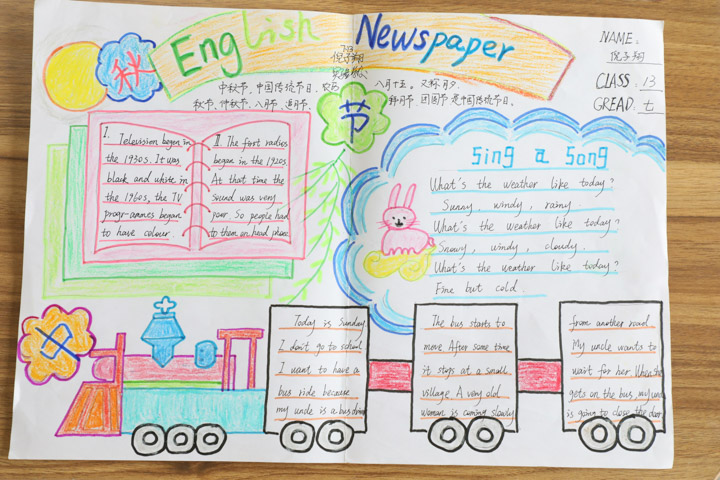 English Newspaper
秋
7.13
倪子翔
NAME:
倪子翔
CLASS: 13
GREAD: 七
中秋节,中国传统节日,
八月十五。又称月夕、
秋节、仲秋节、八月节、追月节、
拜月节、团圆节,是中国传统节日。
节
I. Television began in
the 1930s. It was
black and white in
the 1960s, the TV
progr-ammes began
to have colour.
II. The first radios
began in the 1920s.
At that time the
sound was very
poor. So people had
to them on head phone
Sing a Song
What's the weather like today?
Sunny, windy, rainy.
What's the weather like today?
Snowy, windy, cloudy.
What's the weather like today?
Fine but cold.
中
Today is Sunday
I don't go to school.
I want to have a
bus ride because
my uncle is a bus driver
The bus starts to
move. After some time
it stops at a small
village. A very old
woman is coming slowly
from another road.
My uncle wants to
wait for her. When she
gets on the bus, my uncle
is going to close the door.